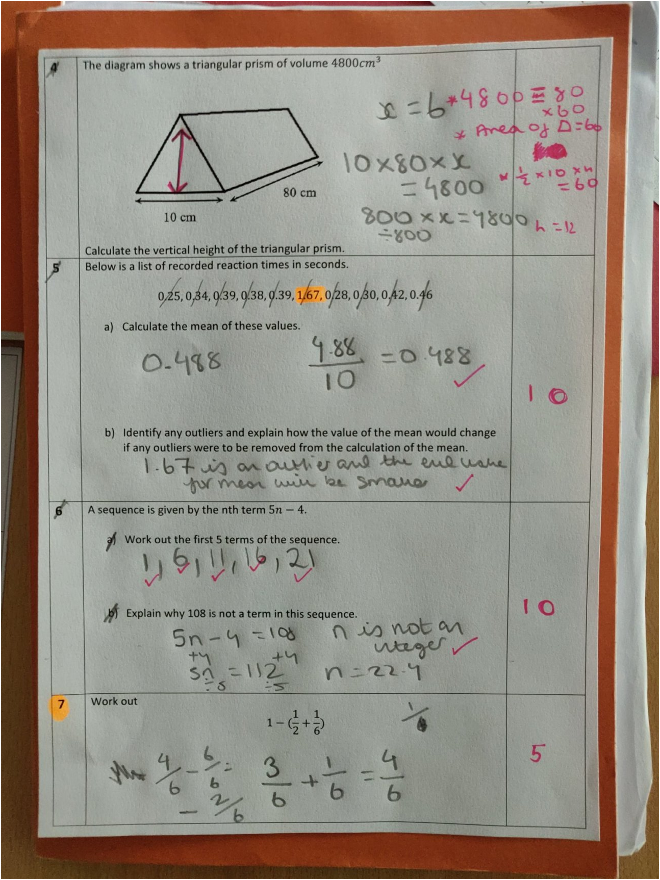 4 The diagram shows a triangular prism of volume 4800cm³
x = 6 *4800 = 80
×60
* Area of Δ=60
10×80×x
= 4800
* ½ ×10 ×h
= 60
80 cm
10 cm
800 × x = 4800
÷800
h = 12
Calculate the vertical height of the triangular prism.
5 Below is a list of recorded reaction times in seconds.
0.25, 0.34, 0.39, 0.38, 0.39, 1.67, 0.28, 0.30, 0.42, 0.46
a) Calculate the mean of these values.
0.488 4.88/10 = 0.488 ✓
10
b) Identify any outliers and explain how the value of the mean would change
if any outliers were to be removed from the calculation of the mean.
1.67 is an outlier and the end value
for mean will be smaller ✓
6 A sequence is given by the nth term 5n − 4.
a) Work out the first 5 terms of the sequence.
1, 6, 11, 16, 21
b) Explain why 108 is not a term in this sequence.
10
5n − 4 = 108 n is not an
integer ✓
+4 +4
5n = 112 n = 22.4
÷5 ÷5
7 Work out
1 − (1/2 + 1/6)
4/6 − 6/6 = 3/6 + 1/6 = 4/6
− 2/6
5